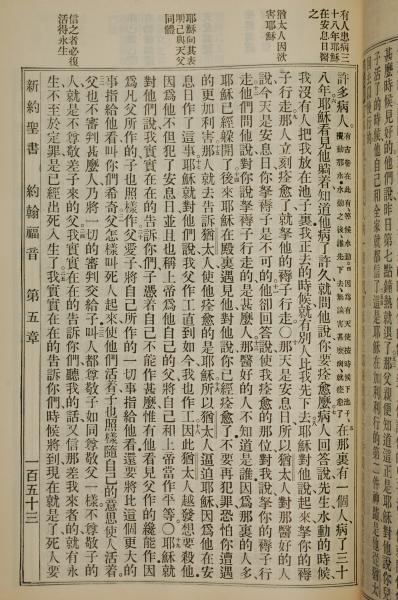 麼時候見好的他們說昨日第七點鐘熱就退了那父親便知道這正是耶穌對他說你兒
子活了的時候他自己和全家就都信了這是耶穌在加利利行的第二件神蹟是他從猶太
有人患病三
十八年耶穌
在安息日醫
之
猶太人因欲
害耶穌
耶穌向其表
明己與天父
同體
信之者必復
活得永生
許多病人古卷在此有等候水動因爲有天使按時候下池子攪動那水水動之後誰先下去無論害甚麼病就痊愈了在那裏有一個人病了三十
八年耶穌看見他躺着知道他病了許久就問他說你要痊愈麼病人回答說先生水動的時候
我沒有人把我放在池子裏我正去的時候就有別人比我先下去耶穌對他說起來拏你的褥
子行走那人立刻痊愈了就拏他的褥子行走〇那天是安息日所以猶太人對那醫好的人
說今天是安息日你拏褥子是不可的他卻回答說使我痊愈的那位對我說拏你的褥子行
走他們問他說對你說拏褥子行走的是甚麼人那醫好的人不知道是誰因爲那裏的人多
耶穌已經躱開了後來耶穌在殿裏遇見他對他說你已經痊愈了不要再犯罪恐怕你遭遇
的更加利害那人就去告訴猶太人使他痊愈的是耶穌所以猶太人逼迫耶穌因爲他在安
息日作了這事耶穌就對他們說我父作工直到如今我也作工因此猶太人越發想要殺他
因爲他不但犯了安息日並且也稱上帝爲他自己的父將自己和上帝當作平等〇耶穌就
對他們說我實實在在的告訴你們子憑着自己不能作甚麼惟有他看見父作的纔能作因
爲凡父所作的子也照樣作父愛子將自己所作的一切事指給他看還要將比這個更大的
事指給他看叫你們希奇父怎樣叫死人起來使他們活着子也照樣隨自己的意思使人活着
父也不審判甚麼人乃將一切的審判交給子叫人都尊敬子如同尊敬父一樣不尊敬子的
人就是不尊敬差子來的父我實實在在的告訴你們聽我的話又信那差我來者的就有永
生不至於定罪是已經出死入生了我實實在在的告訴你們時候將到現在就是了死人要
新約聖書 約翰福音 第五章 一百五十三